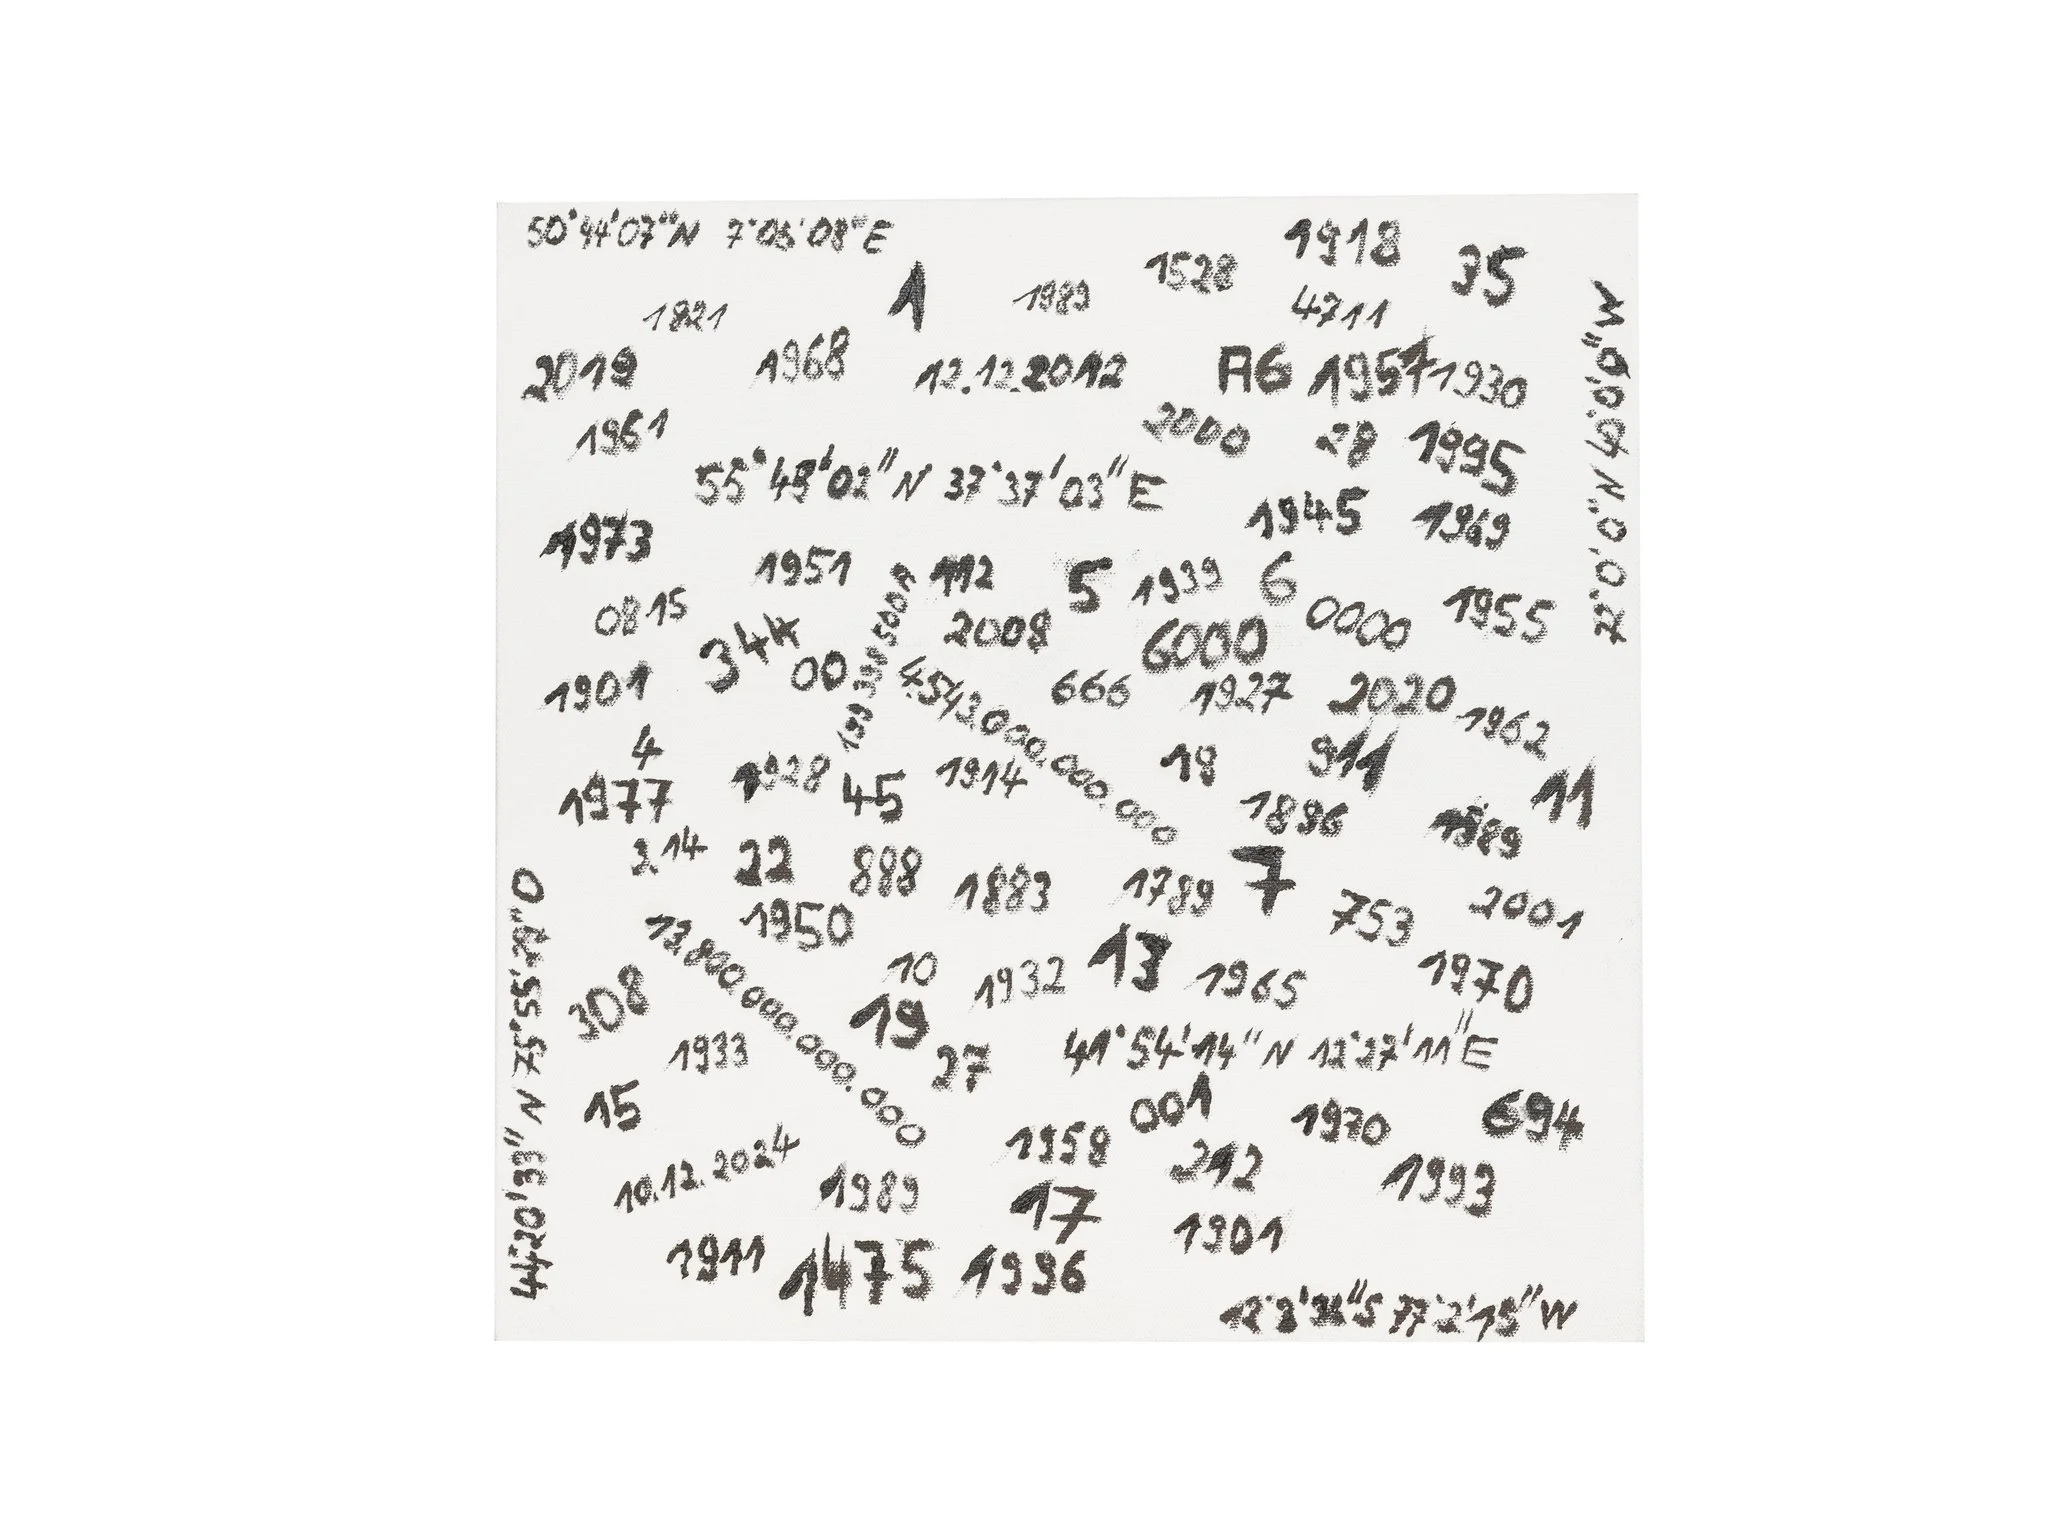 50°44'07"N 7°05'08"E
1918
35
1
1528
1821
1989
4711
2019
1968
12.12.2012
A6
1957
1930
1961
2000
28
1995
55°45'02"N 37°37'03"E
1973
1945
1969
1951
112
5
1939
6
0815
344
00
2008
6000
0000
1955
1901
4.543.000.000.000
666
1927
2020
1962
4
1928
45
1914
18
911
11
1977
1896
1989
3.14
22
888
1883
1789
7
753
2001
1950
13.800.000.000.000
10
1932
13
1965
1970
308
19
1933
27
41°54'14"N 12°27'11"E
15
001
1970
694
10.12.2024
1989
1958
212
1993
17
1901
1911
1475
1996